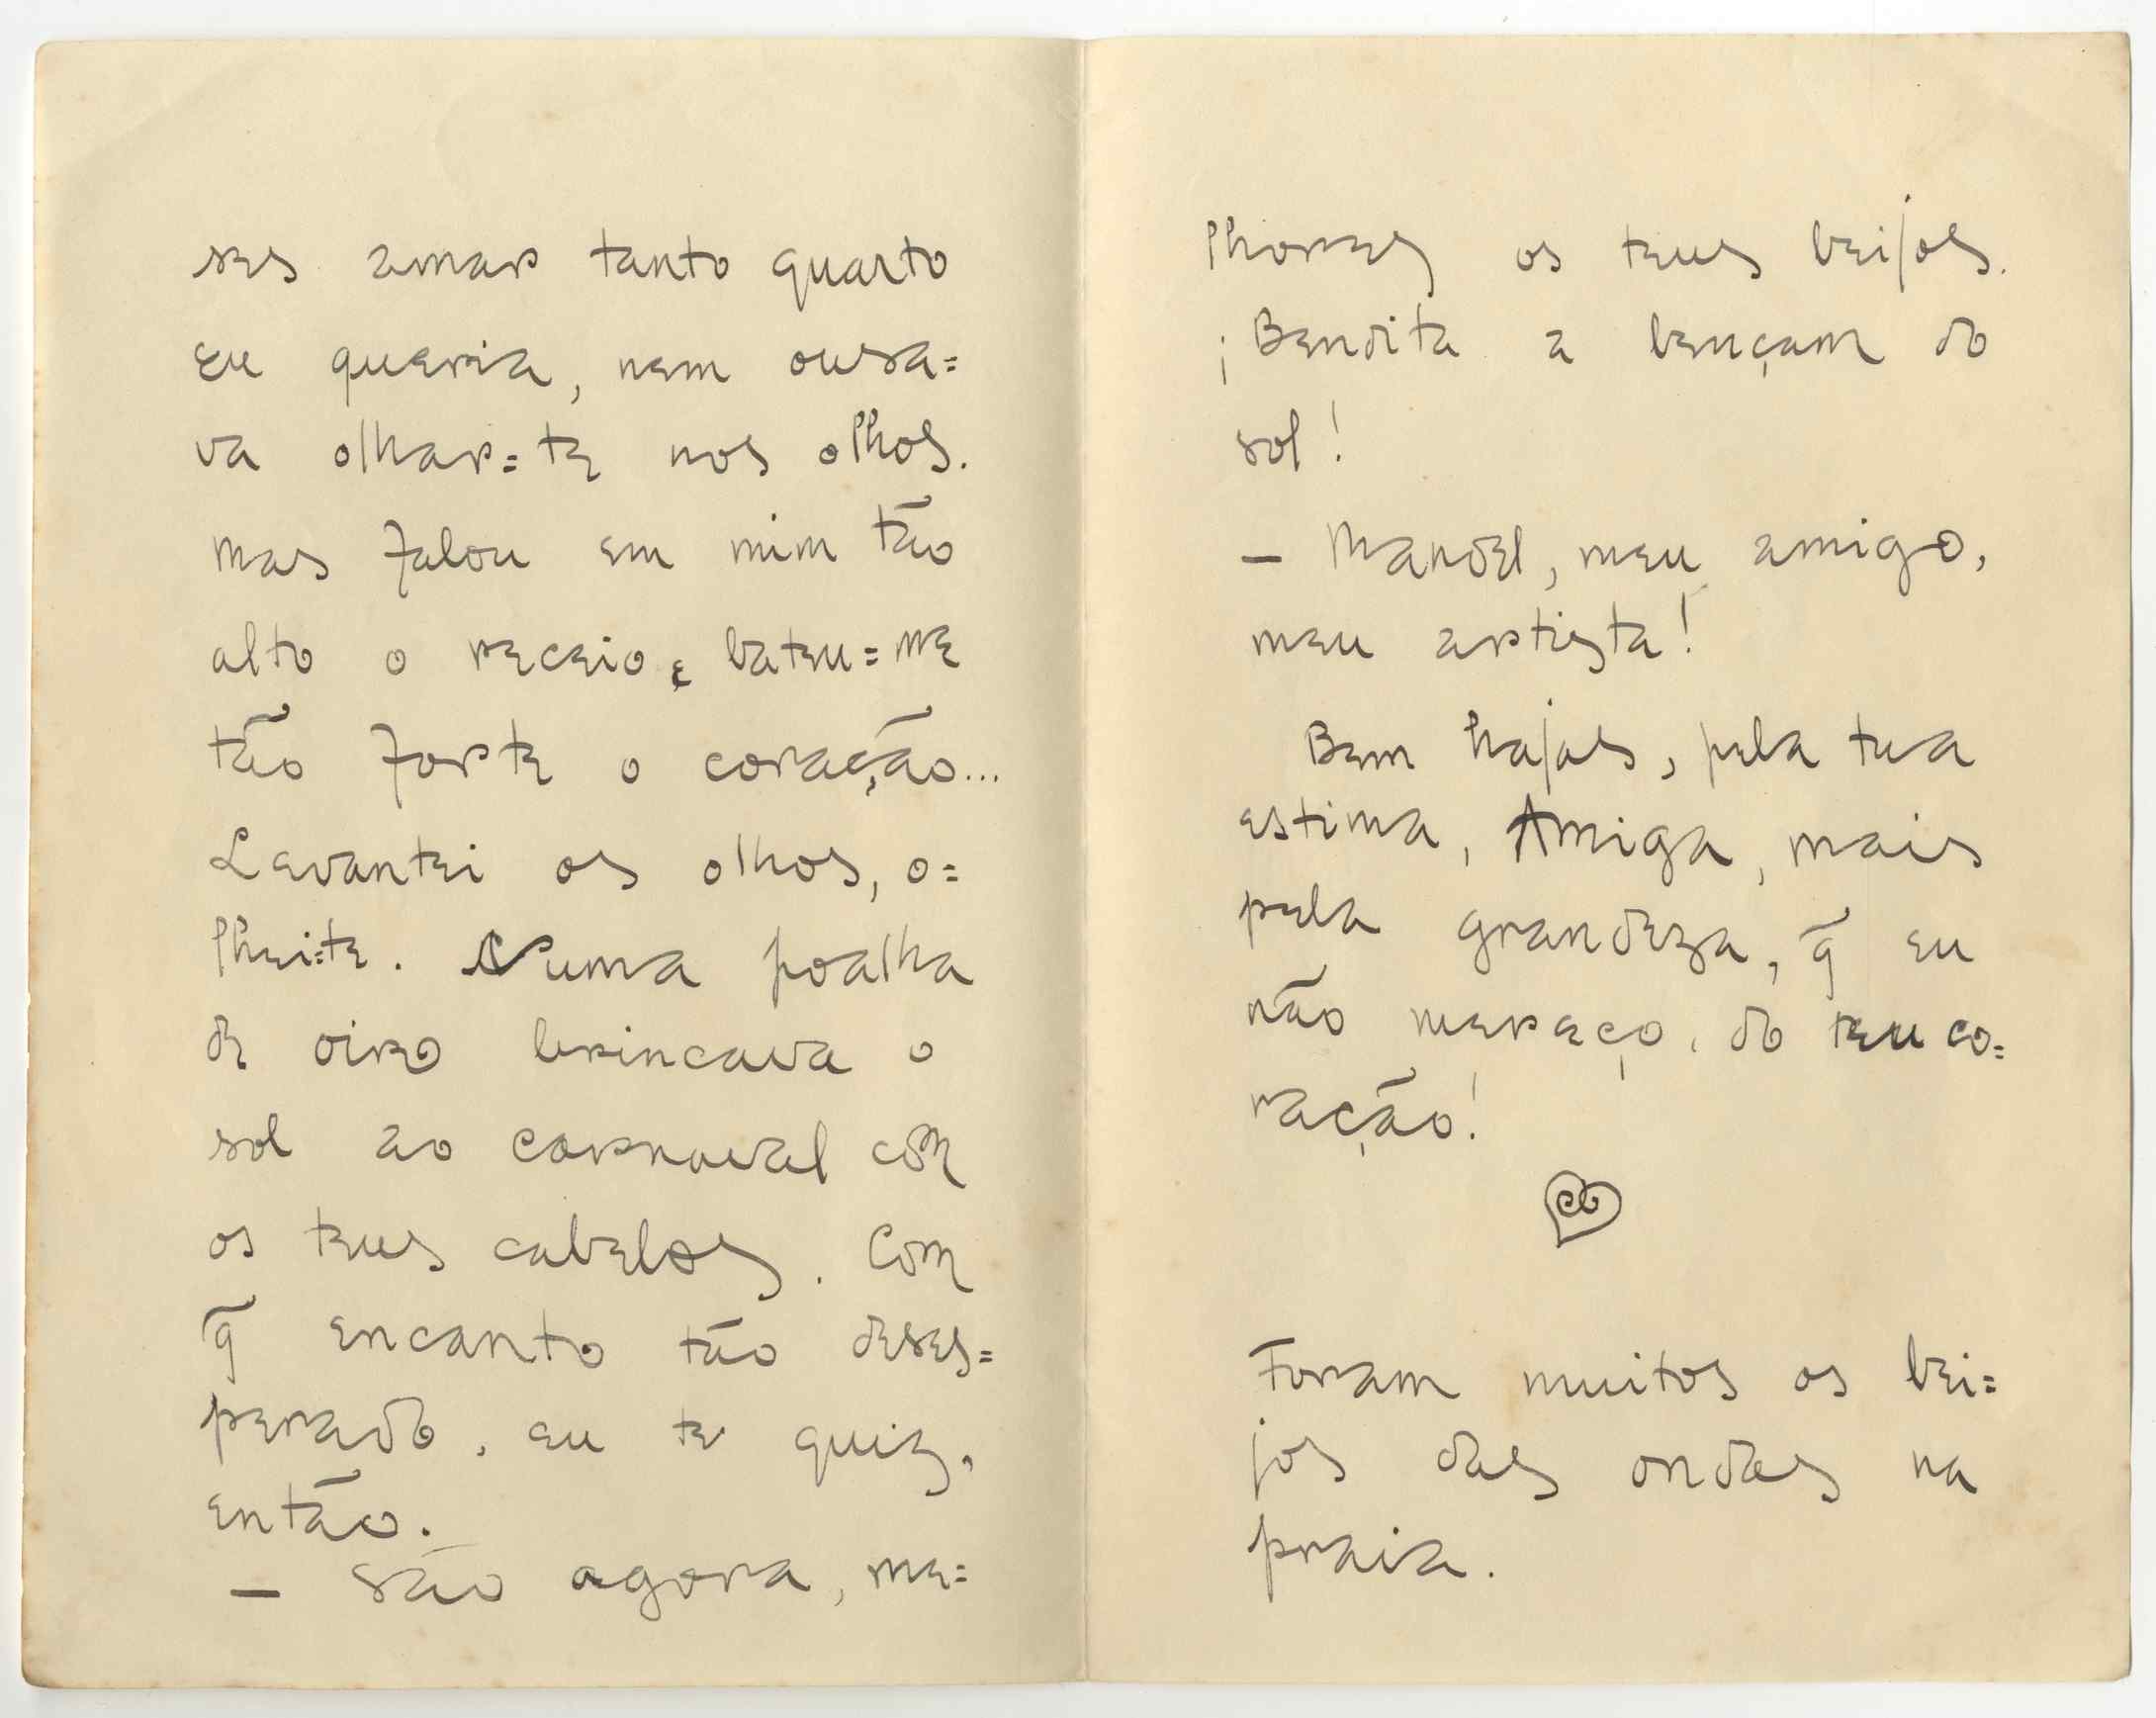 ses amar tanto quarto
eu queria, nem ousa=
va olhar=te nos olhos.
mas falou em mim tão
alto o receio e bateu=me
tão forte o coração...
Levantei os olhos, o=
lhei=te. Numa poalha
de oiro brincava o
sol ao carnaval com
os teus cabelos. Com
q̃ encanto tão deses=
perado, eu te quiz,
então.
– São agora, me=
lhores os teus beijos.
¡Bendita a bençam do
sol!
– Manoel, meu amigo,
meu artista!
Bem hajas, pela tua
estima, Amiga, mais
pela grandeza, q̃ eu
não mereço, do teu co=
ração!
Foram muitos os bei=
jos das ondas na
praia.